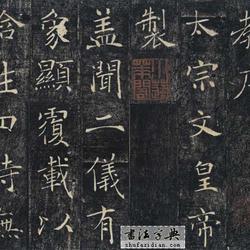 太宗文皇帝
製
盖聞二儀有
象顯覆載以
含生四時無
書法字典
shufazidian.com